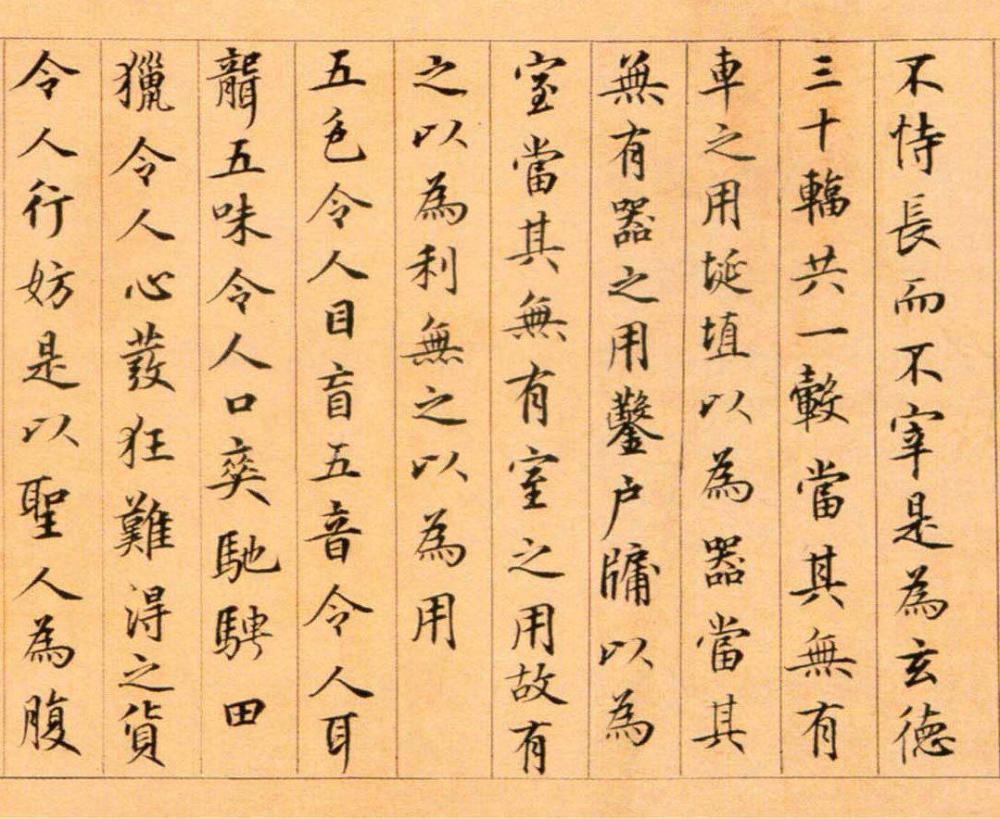 不恃長而不宰是為玄德
三十輻共一轂當其無有
車之用埏埴以為器當其
無有器之用鑿戶牖以為
室當其無有室之用故有
之以為利無之以為用
五色令人目盲五音令人耳
聾五味令人口爽馳騁田
獵令人心發狂難得之貨
令人行妨是以聖人為腹